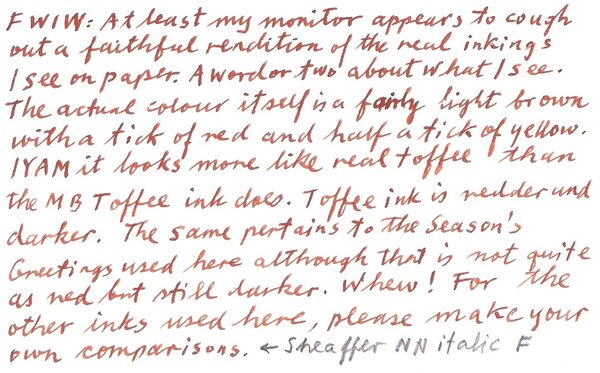 FWIW: At least my monitor appears to cough
out a faithful rendition of the real inkings
I see on paper. A word or two about what I see.
The actual colour itself is a fairly light brown
with a tick of red and half a tick of yellow.
IYAM it looks more like real toffee than
the MB Toffee ink does. Toffee ink is redder and
darker. The same pertains to the Season's
Greetings used here although that is not quite
as red but still darker. Whew! For the
other inks used here, please make your
own comparisons. ← Sheaffer NN italic F